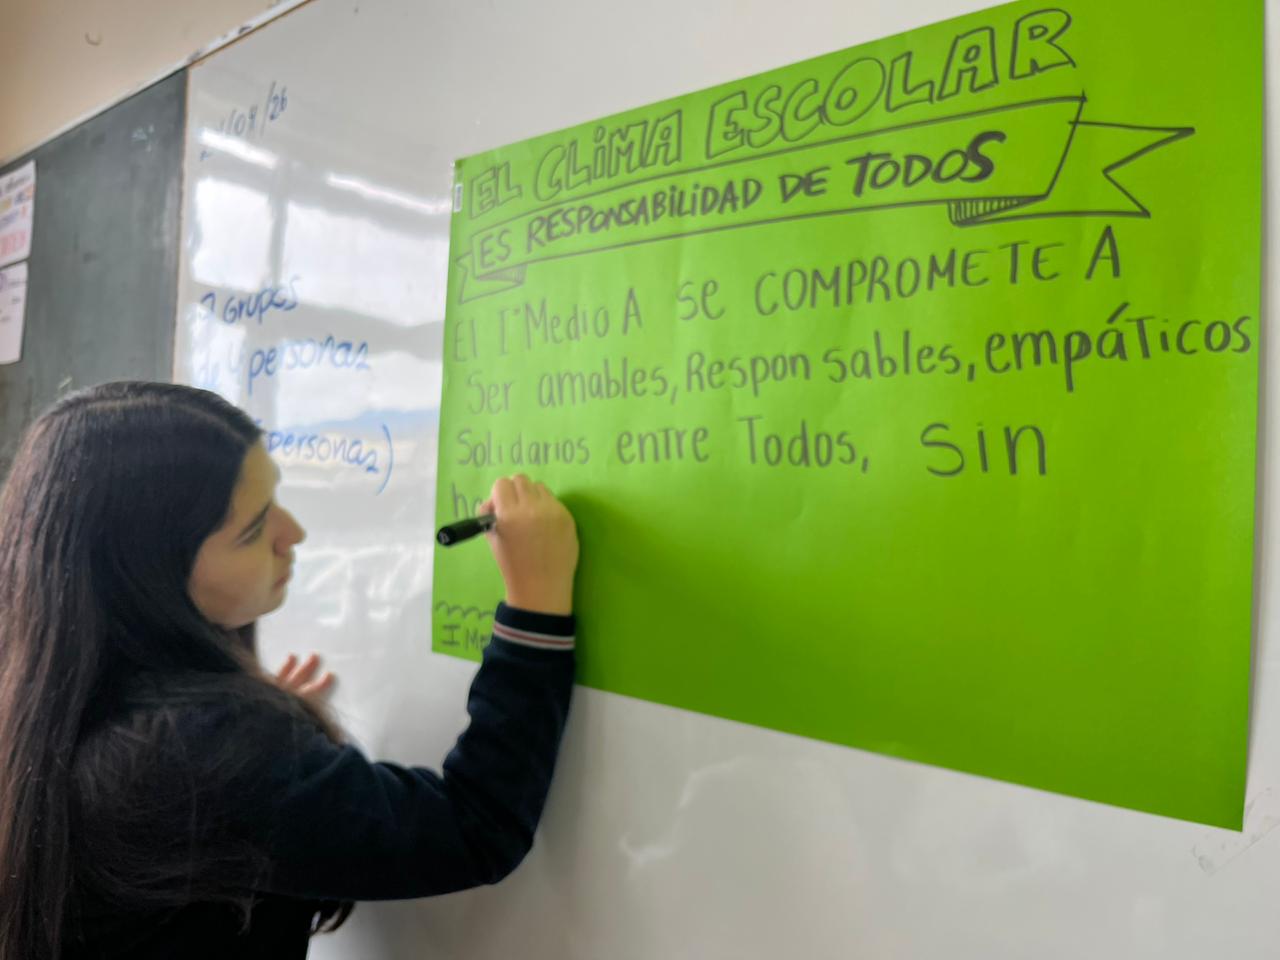 /04/26
grupos
de 4 personas
personas)
EL CLiMA ESCOLAR
ES RESPONSABiLiDAD DE TODOS
El I° Medio A se COMPROMETE A
Ser amables, Responsables, empáticos
Solidarios entre Todos, sin